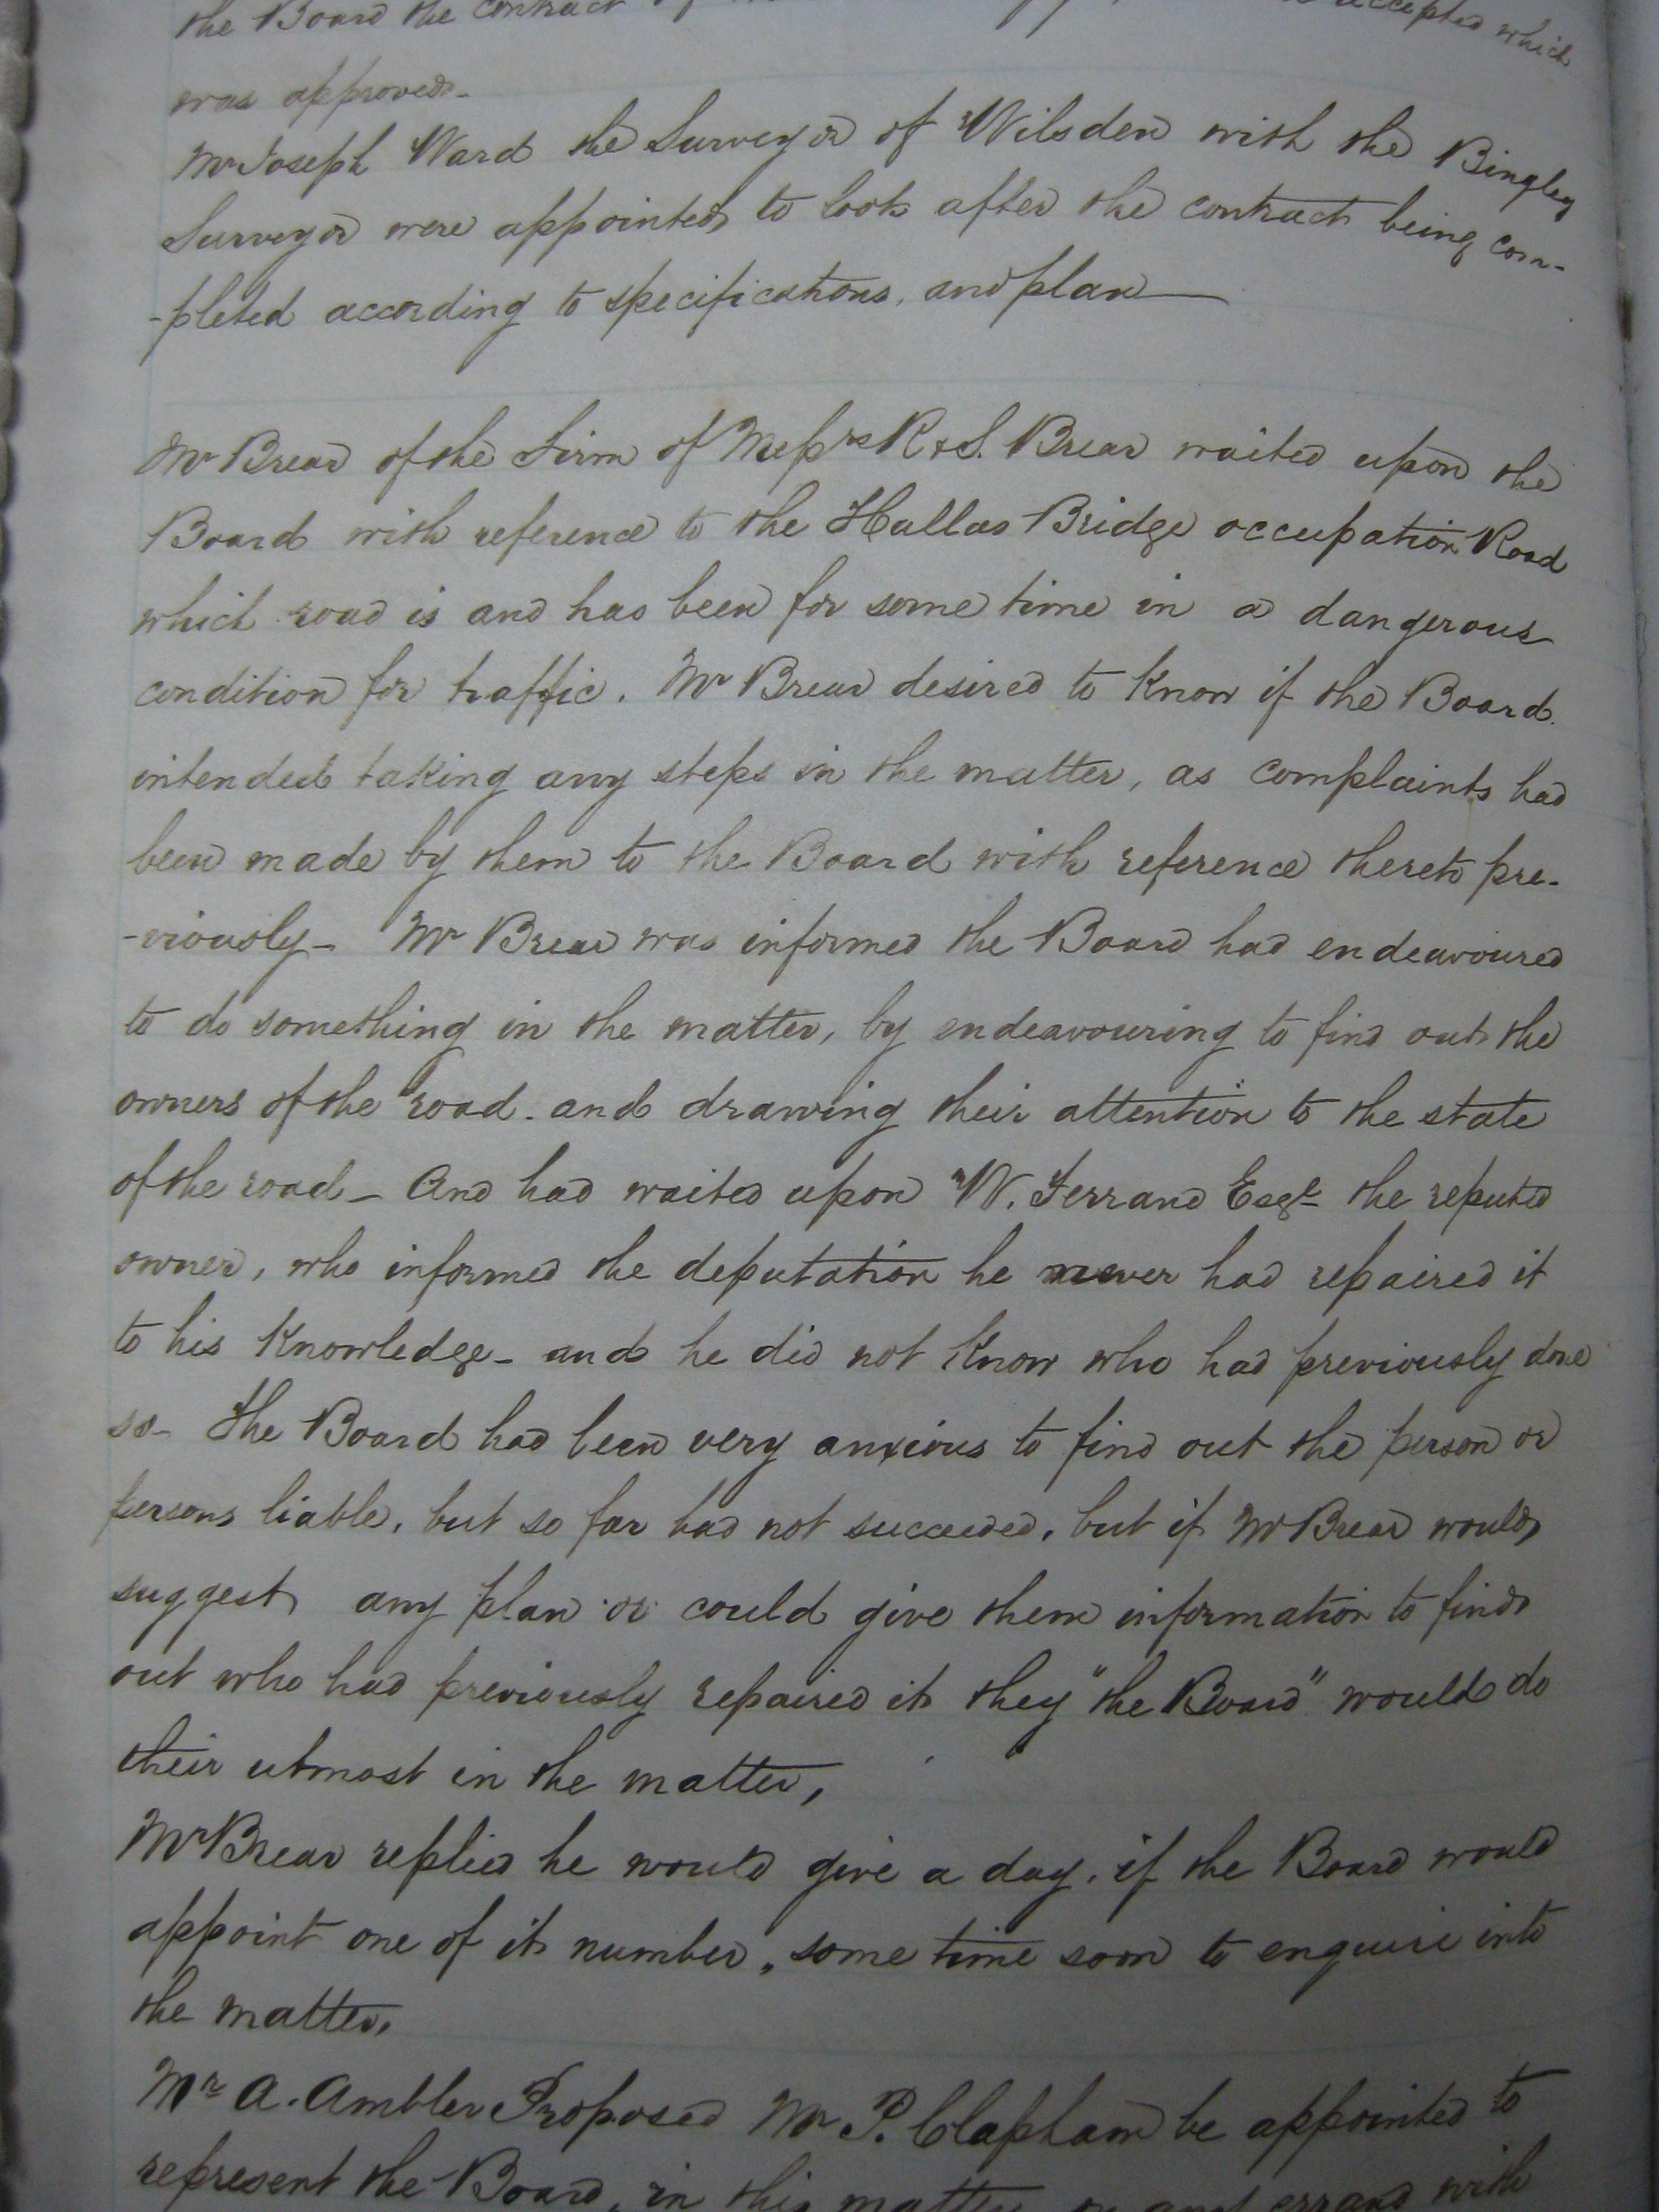 the Board the contract accepted which
was approved-
Mr Joseph Ward the Surveyor of Wilsden with the Bingley
Surveyor were appointed to look after the contract being com-
-pleted according to specifications, and plan
Mr Brear of the Firm of Messrs R & S. Brear waited upon the
Board with reference to the Hallas Bridge occupation Road
which road is and has been for some time in a dangerous
condition for traffic. Mr Brear desired to know if the Board
intended taking any steps in the matter, as complaints had
been made by them to the Board with reference thereto pre-
-viously- Mr Brear was informed the Board had endeavoured
to do something in the matter, by endeavouring to find out the
owners of the road. and drawing their attention to the state
of the road- And had waited upon W. Ferrand Esqr the reputed
owner, who informed the deputation he never had repaired it
to his Knowledge- and he did not know who had previously done
so- The Board had been very anxious to find out the person or
persons liable, but so far had not succeeded, but if Mr Brear would
suggest any plan or could give them information to find
out who had previously repaired it they "the Board" would do
their utmost in the matter,
Mr Brear replied he would give a day, if the Board would
appoint one of its number, some time soon to enquire into
the matter.
Mr A. Ambler Proposed Mr P. Clapham be appointed to
represent the Board, in this matter errand with